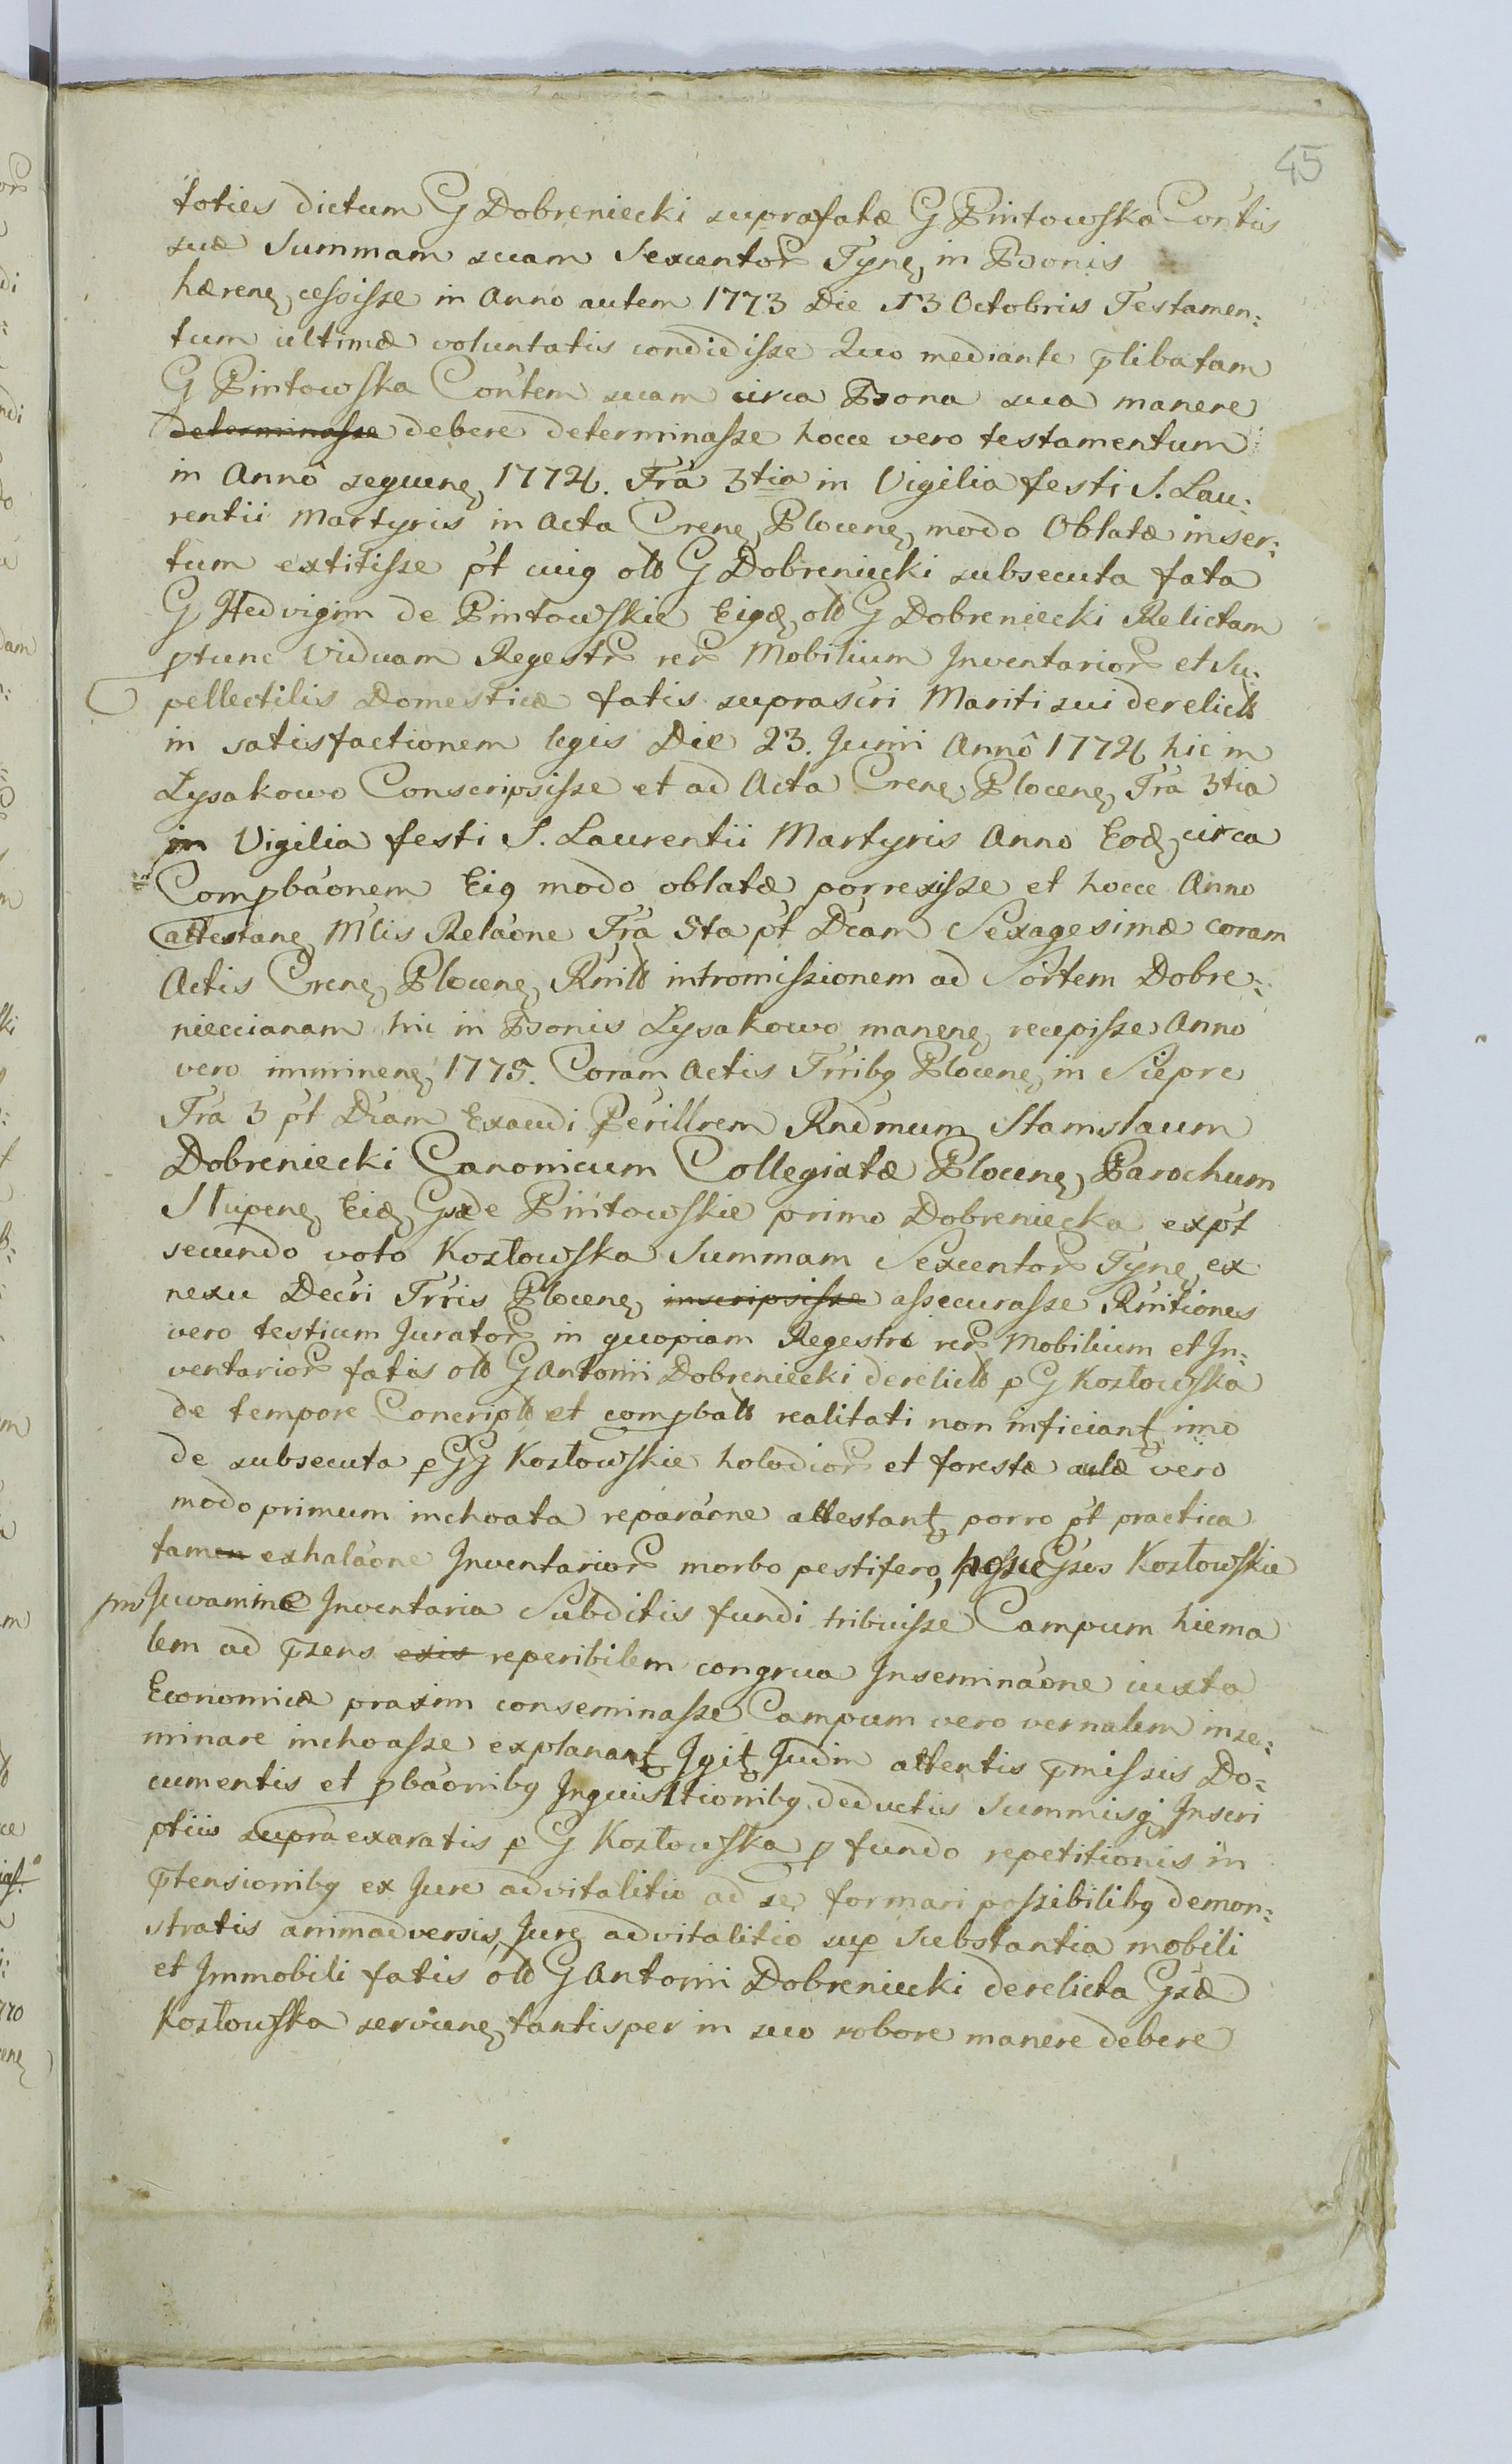 45
toties dictum G Dobreniecki suprafatæ G Pintowska Con̄tis
suæ Summam suam Sexcentor Tyne, in Bonis
hærene, cessisse in Anno autem 1773 Die 13 Octobris Testamen:
tum ultimæ voluntatis condidisse Quo mediante p̄libatam
G Pintowska Con̄tem suam circa Bona sua manere
determinasse debere determinasse hocce vero testamentum
in Annô sequene, 1774. Fr̄a 3tia in Vigilia festi S. Lau:
rentii Martyris in Acta Crene, Plocene, modo Oblatæ inser:
tum extitisse p̄t cuig olb G Dobreniecki subsecuta fata
G Hedvigim de Pintowskie Eigd, olb G Dobreniecki Relictam
ptunc Viduam Regestr rer Mobilium Inventarior et Su:
pellectilis Domesticæ fatis suprascri Mariti sui derelictb
in satisfactionem legis Die 23. Junii Annô 1774 hic in
Lysakowo Conscripsisse et ad Acta Crene, Plocene, Fr̄a 3tia
in Vigilia festi S. Laurentii Martyris Anno Eod, circa
Compbāonem Eig modo oblatæ porrexisse et hocce Anno
attestane, Mlis Relāone Fr̄a 5ta p̄t Dcam Sexagesimæ coram
Actis Crene, Plocene, Rnilb intromissionem ad Sortem Dobre:
nieccianam hic in Bonis Lysakowo manene, recepisse Anno
vero imminene, 1775. Coram Actis Trribg Plocene, in Siepre
Fr̄a 3 p̄t Dcam Exaudi Perillrem Rndmum Stanislaum
Dobreniecki Canonicum Collegiatæ Plocene, Parochum
Slupene, Eid, Gsæ de Pintowskie primo Dobreniecka exp̄t
secundo voto Kozłowska Summam Sexcentor Tyne, ex
nexu Decri Trris Plocene, inscripsisse assecurasse Rnitiones
vero testium Jurator in quopiam Regestro rer Mobilium et In:
ventarior fatis olb G Antonii Dobreniecki derelictb p G Kozłowska
de tempore Concriptb et compbatb realitati non inficiant, imo
de subsecuta p GG Kozłowskie holodior et forestæ aulæ vero
modo primum inchoata reparāone attestant, porro p̄t practica
tamen exhalāone Inventarior morbo pestifero, hosce Gsos Kozłowskie
pro Juvamine Inventaria Subditis fundi tribuisse Campum hiema
lem ad p̄sens exis reperibilem congrua Insemināone iuxta
Economicæ praxim conseminasse Campum vero vernalem inse:
minare inchoasse explanant, Igit, Judm attentis p̄missis Do:
cumentis et pbāonibg Inquisitionibg, deductis Summisq Inscri
ptiis supra exaratis p G Kozłowska p fundo repetitionis in
p̄tensionibg ex Jure advitalitio ad se formari possibilibg demon:
stratis animadversis, Jure advitalitio sup Substantia mobili
et Immobili fatis olb G Antonii Dobreniecki derelicta Gsæ
Kozłowska serviene, tantisper in suo robore manere debere